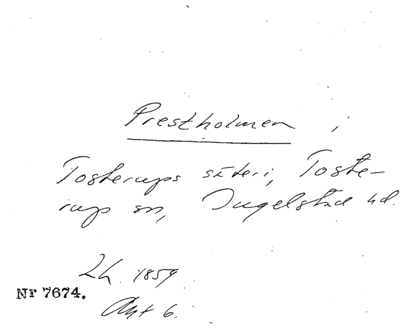 Prestholmen,
Tosterups säteri, Toste-
rup sn, Ingelstad hd.
Lh. 1859
Nr 7674.
Akt 6.